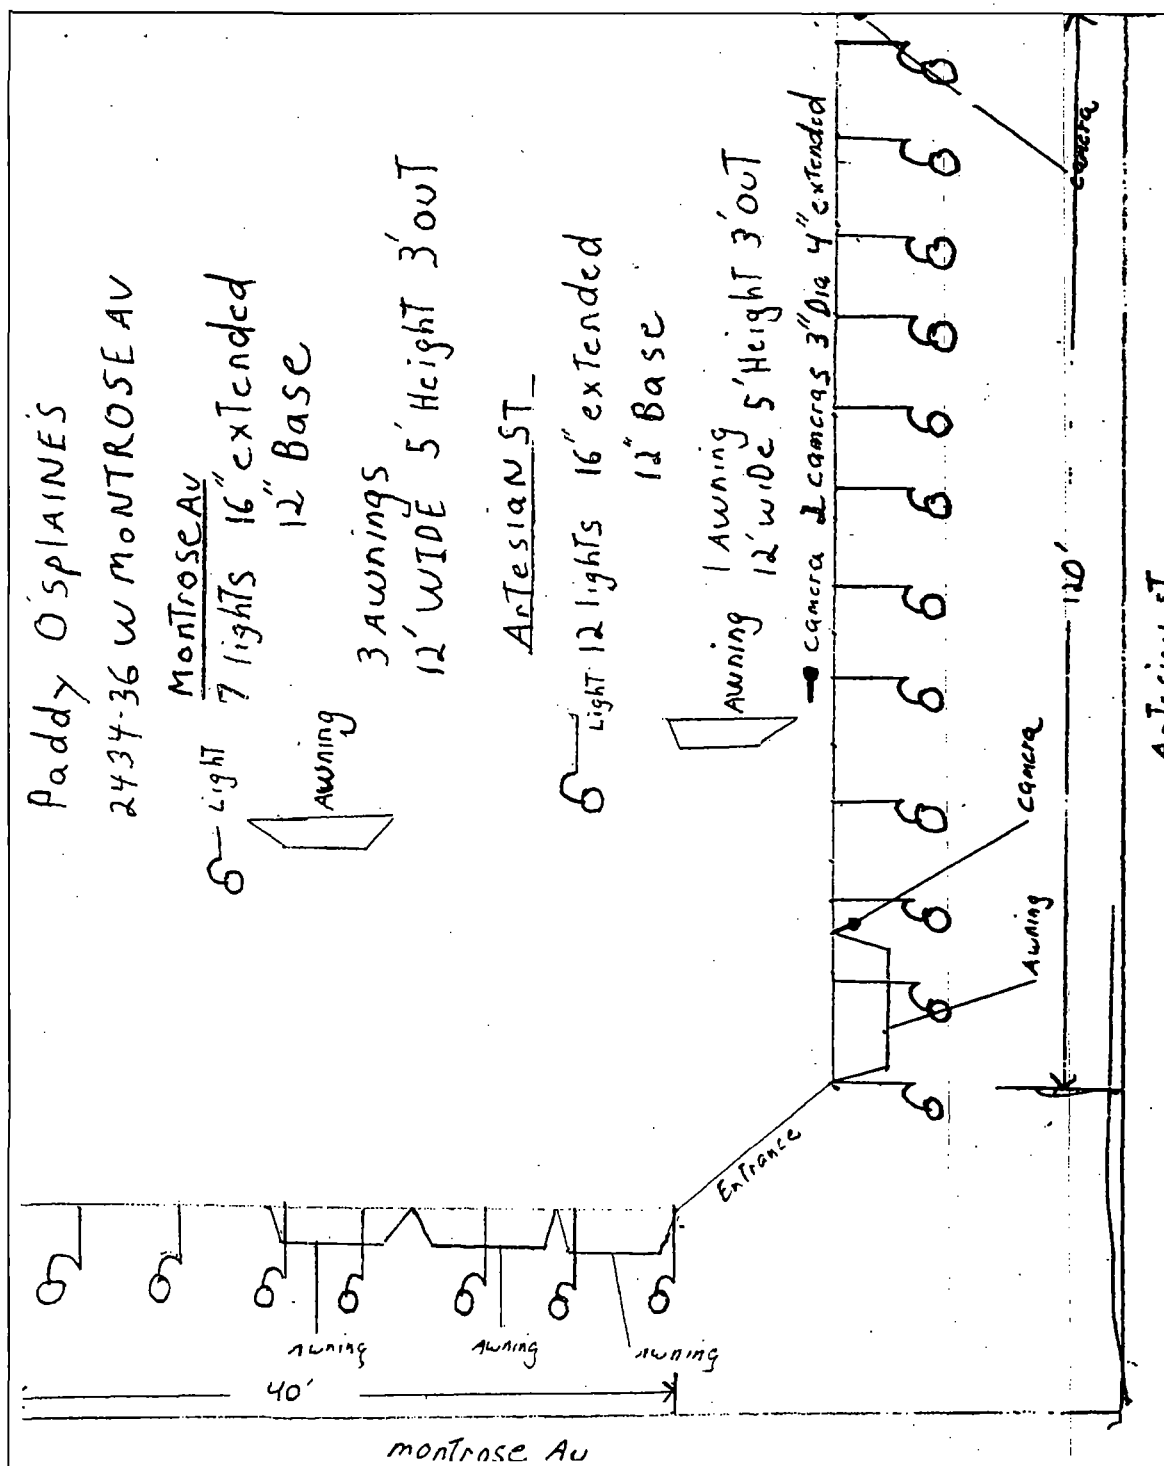 Paddy O'SPLAINE'S
2434-36 W MONTROSE AV
MonTrose Av
Light 7 lighTs 16" exTended
12" Base
Awning
3 Awnings
12' WIDE 5' HeighT 3' OUT
ArTesiaN ST
LighT 12 lighTs 16" exTended
12" Base
Awning 1 Awning
12' wiDe 5' HeighT 3' OUT
camera 2 cameras 3" Dia 4" exTended
camera
120'
ArTesian ST
camera
Awning
EnTrance
Awning
Awning
Awning
40'
monTrose Av